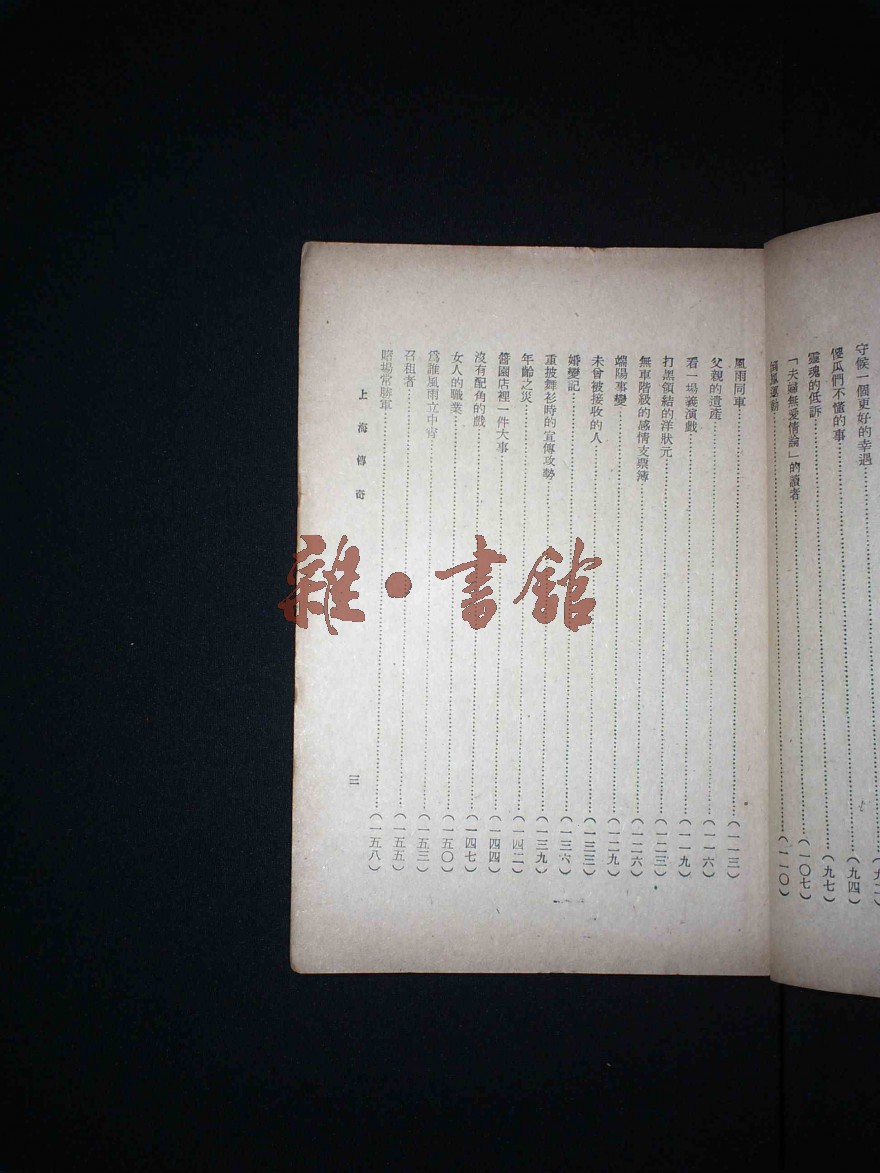 守候一個更好的幸遇
傻瓜們不懂的事(九四)
靈魂的低訴(九七)
「夫婦無愛情論」的讀者(一〇七)
(一一〇)
風雨同車(一一三)
父親的遺產(一一六)
看一場義演戲(一一九)
打黑領結的洋狀元(一二三)
無軍階級的感情支票簿(一二六)
端陽事變(一二九)
未曾被接收的人(一三三)
婚變記(一三六)
重披舞衫時的宣傳攻勢(一三九)
年齡之災(一四二)
醬園店裡一件大事(一四四)
沒有配角的戲(一四七)
女人的職業(一五〇)
爲誰風雨立中宵(一五三)
召租者(一五五)
賭場常勝軍(一五八)
上海傳奇
三
雜·書館